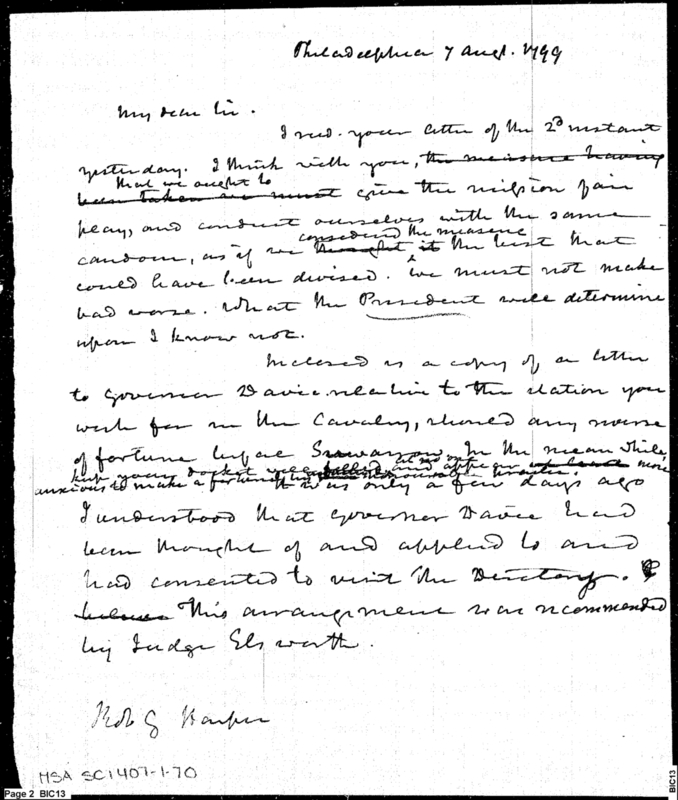 Philadelphia 7 Augt. 1799
My dear Sir.
I recd. your letter of the 2d instant
yesterday. I think with you, the measure having
that we ought to
been taken we must give the mission fair
play, and conduct ourselves with the same
considered the measure
candour, as if we thought it the best that
could have been devised. We must not make
bad worse. What the President will determine
upon I know not.
Inclosed is a copy of a letter
to Governor Davie relative to the station you
wish for in the Cavalry, should any
of fortune In the mean while
keep your docket well filled and appear more
anxious to make a fortune
It was only a few days ago
I understood that Governor Davie had
been thought of and applied to and
had consented to visit the Directory.
This arrangement was recommended
by Judge Elsworth.
Rob G Harper
MSA SC1407-1-70
Page 2 BIC13
BIC13